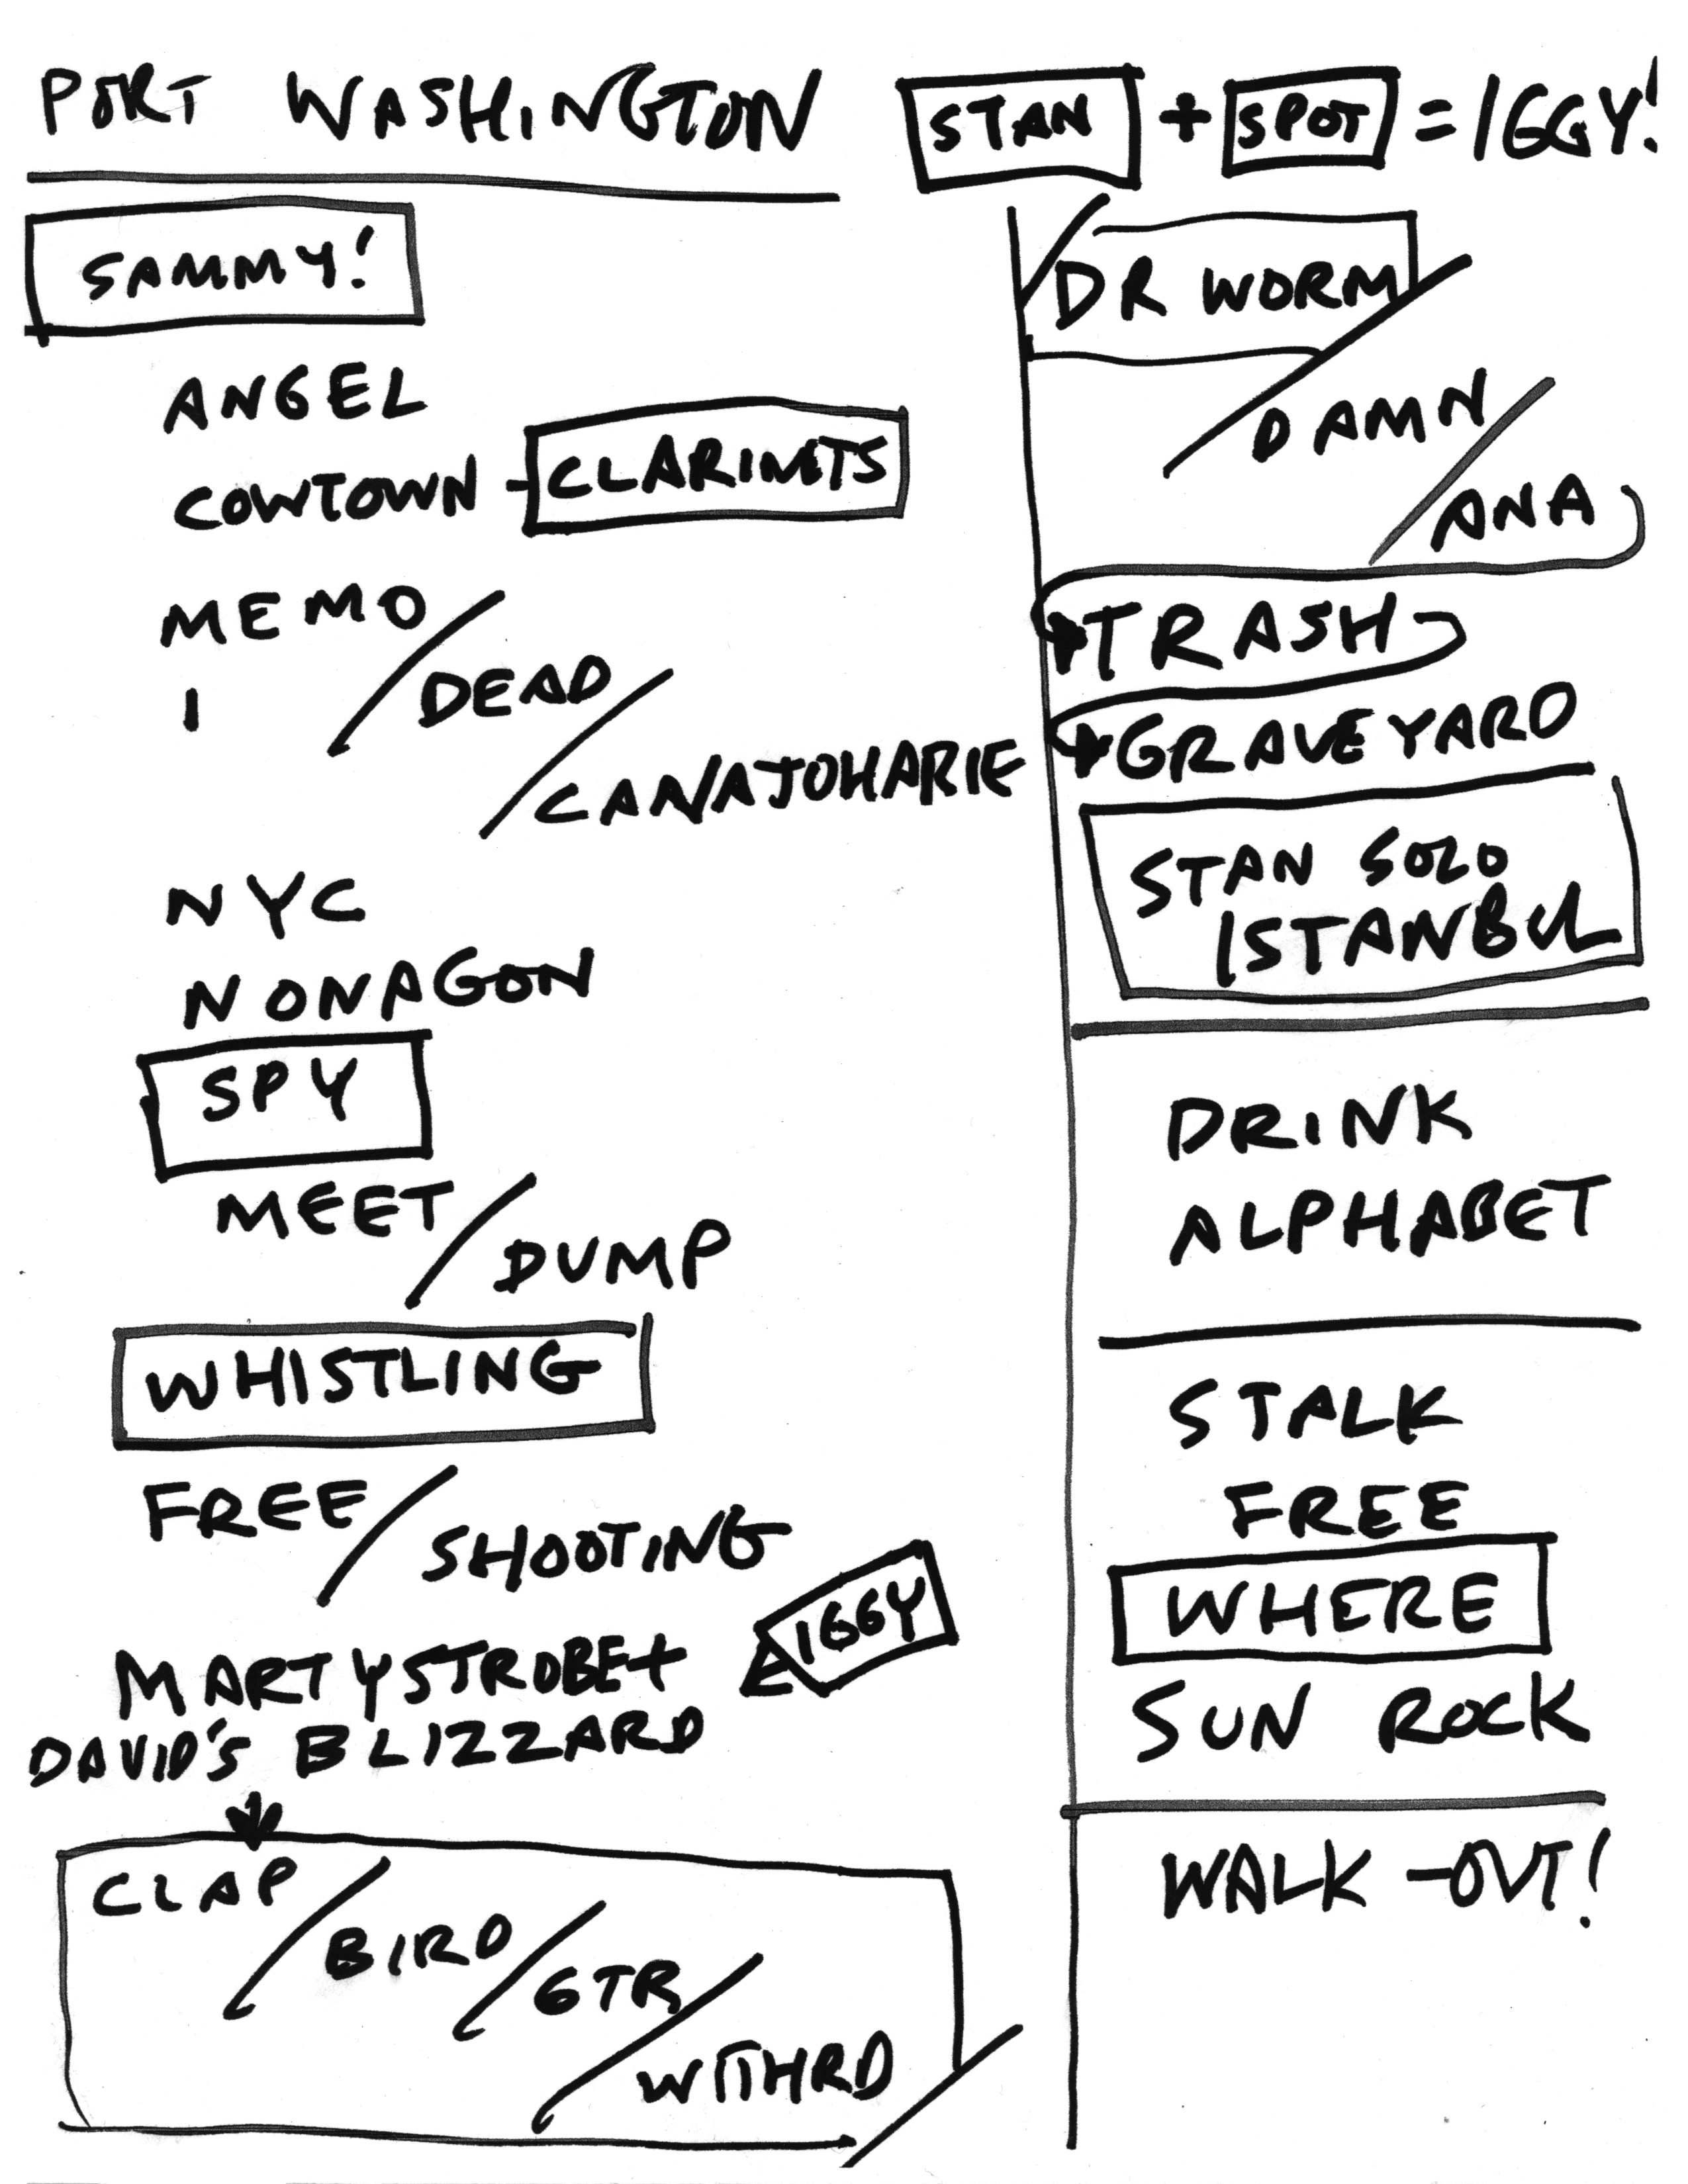 PORT WASHINGTON
STAN + SPOT = IGGY!
SAMMY!
ANGEL
COWTOWN - CLARINETS
MEMO
1 / DEAD
/ CANAJOHARIE
NYC
NONAGON
SPY
MEET / DUMP
WHISTLING
FREE / SHOOTING
IGGY
MARTY STROBE +
DAVID'S BLIZZARD
CLAP
/ BIRD
/ GTR
/ WITHRD
/ DR WORM
/ DAMN
/ ANA
TRASH
GRAVEYARD
STAN SOLO
ISTANBUL
DRINK
ALPHABET
STALK
FREE
WHERE
SUN ROCK
WALK-OUT!